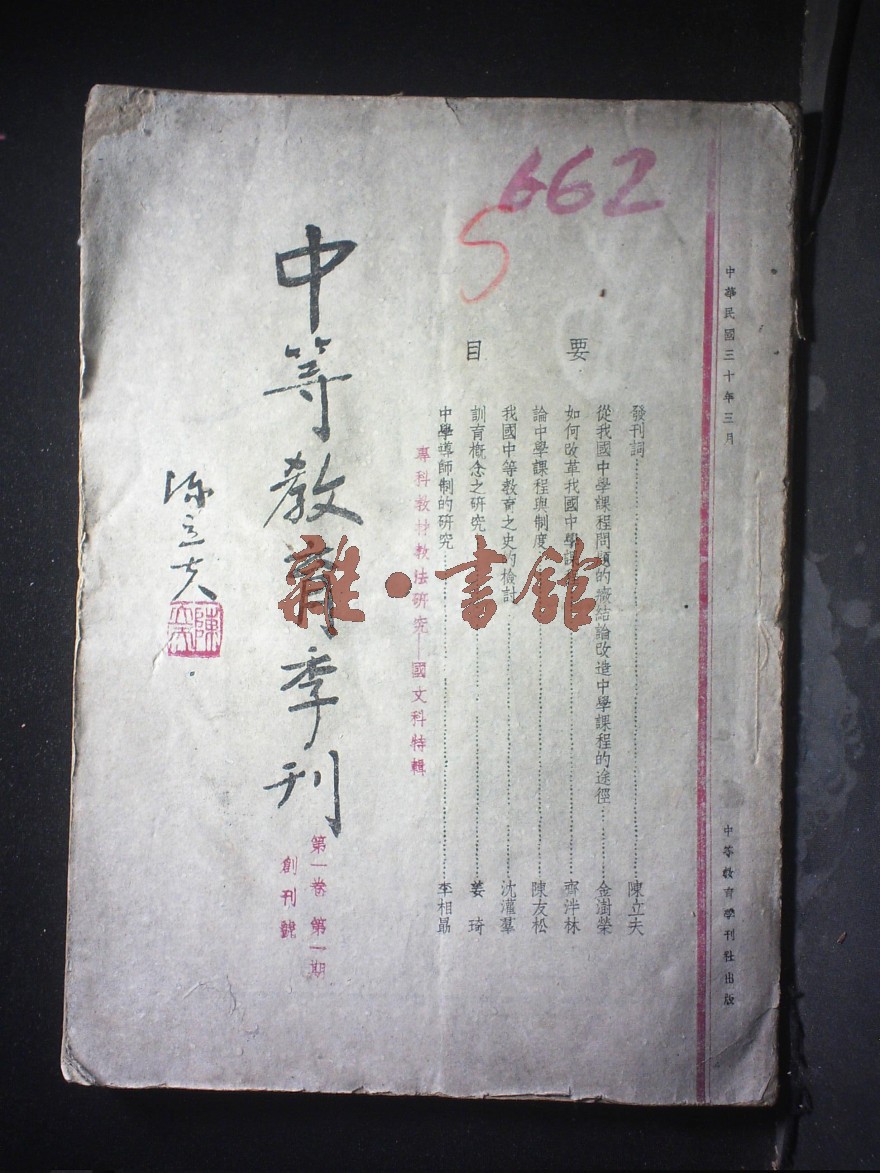 中華民國三十年三月
中等教育季刊社出版
662
5
要目
發刊詞……陳立夫
從我國中學課程問題的癥結論改造中學課程的途徑……金澍榮
如何改革我國中學課……齊泮林
論中學課程與制度……陳友松
我國中等教育之史的檢討……沈灌羣
訓育概念之研究……姜琦
中學導師制的研究……李相勗
專科教材教法研究—國文科特輯
中等教育季刊
第一卷 第一期
創刊號
陳立夫
雜·書館